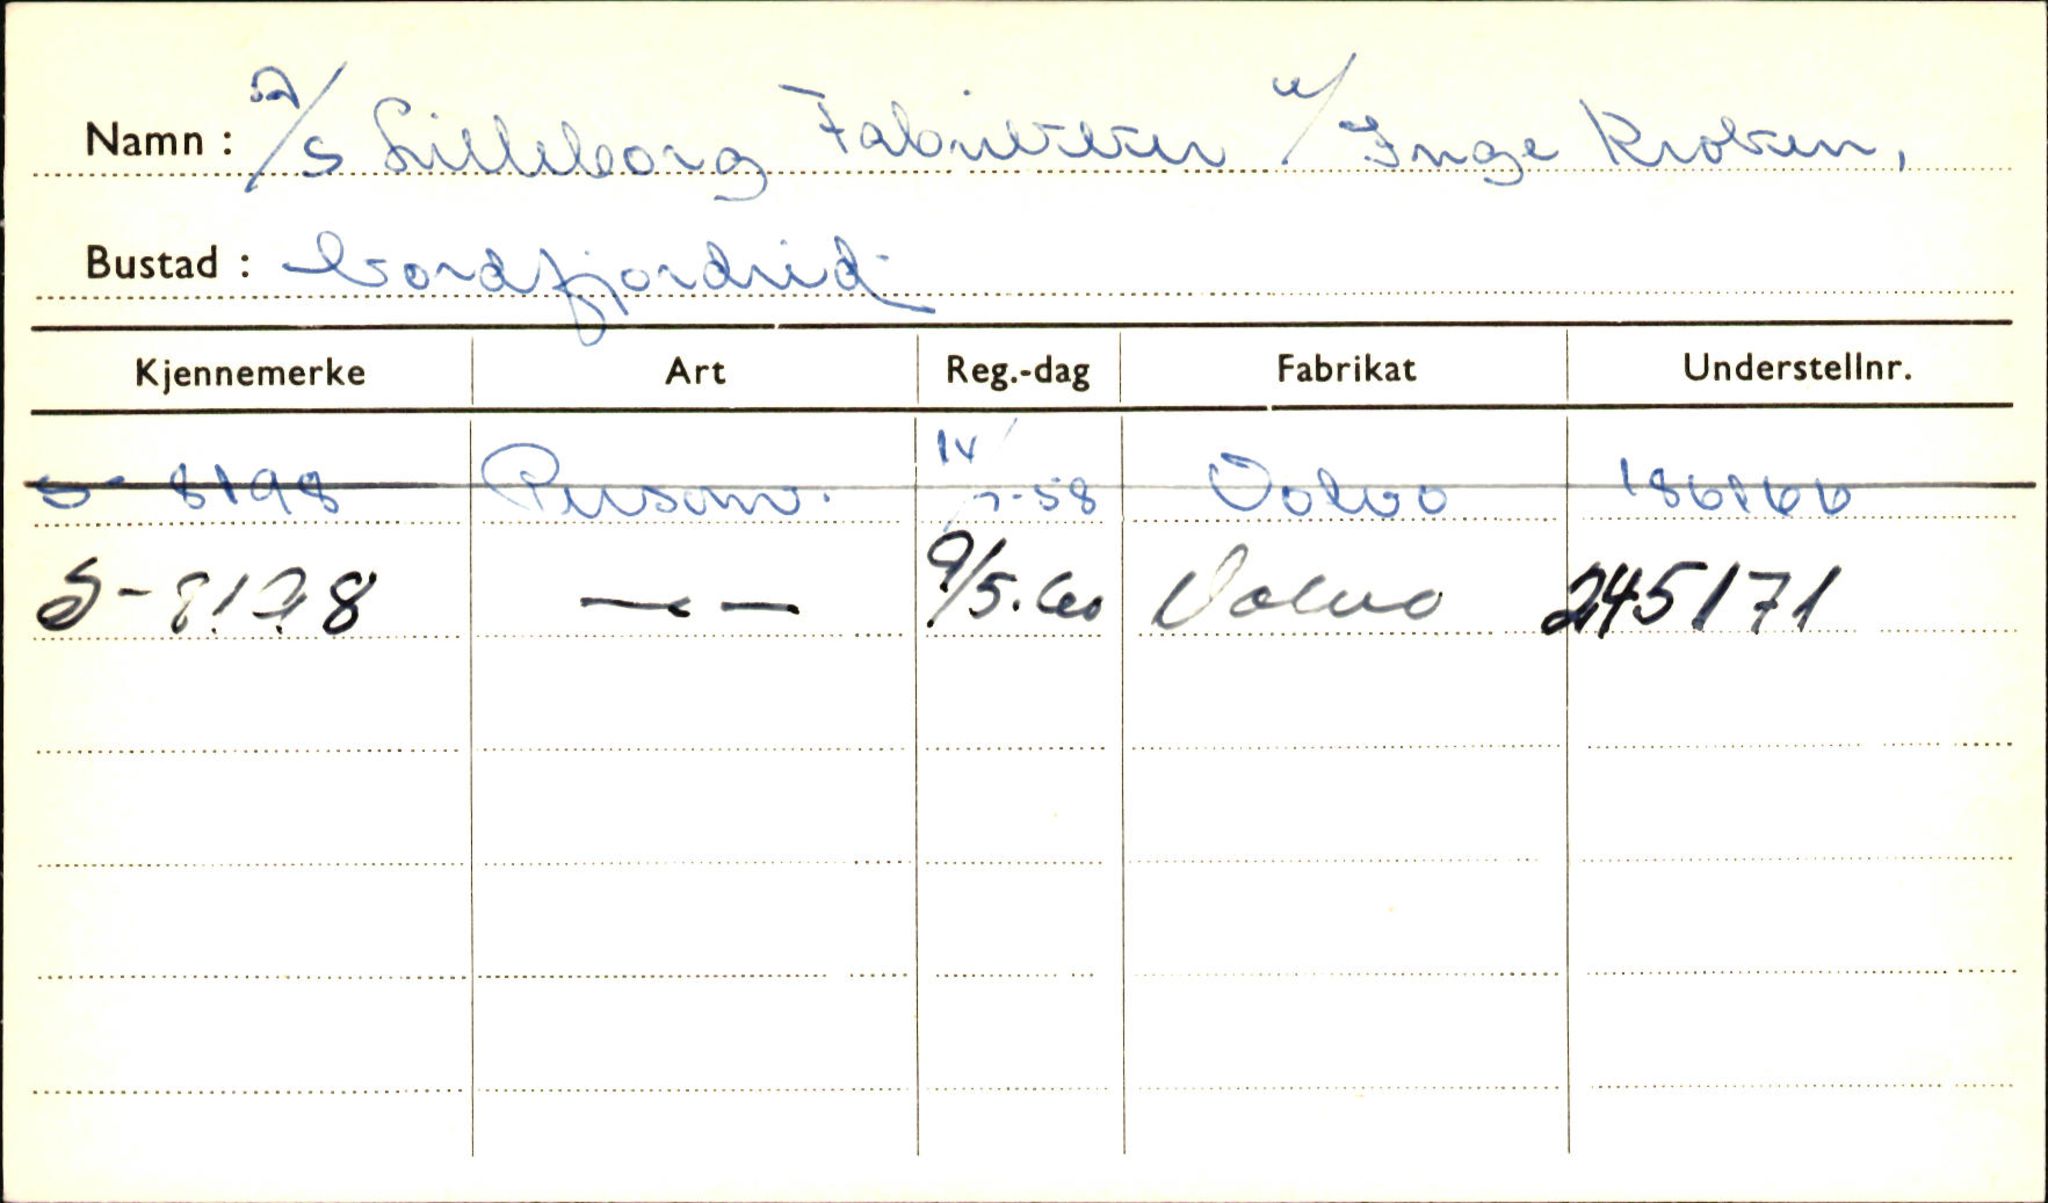 Namn : A/S Lilleborg Fabrikker v/ Inge Kroken,
Bustad : Nordfjordeid
Kjennemerke Art Reg.-dag Fabrikat Understellnr.
S- 8198 Personv. 14/7-58 Volvo 186166
S-8198 —"— 9/5.60 Volvo 245171